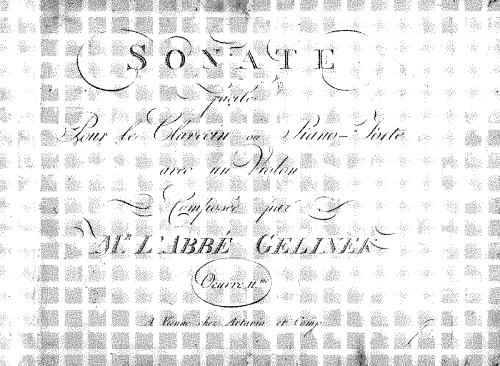 SONATE
facile
Pour le Clavecin ou Piano-Forte
avec un Violon
Composée par
Mr. L'ABBÉ GELINEK
Oeuvre 11.me
A Vienne chez Artaria et Comp.